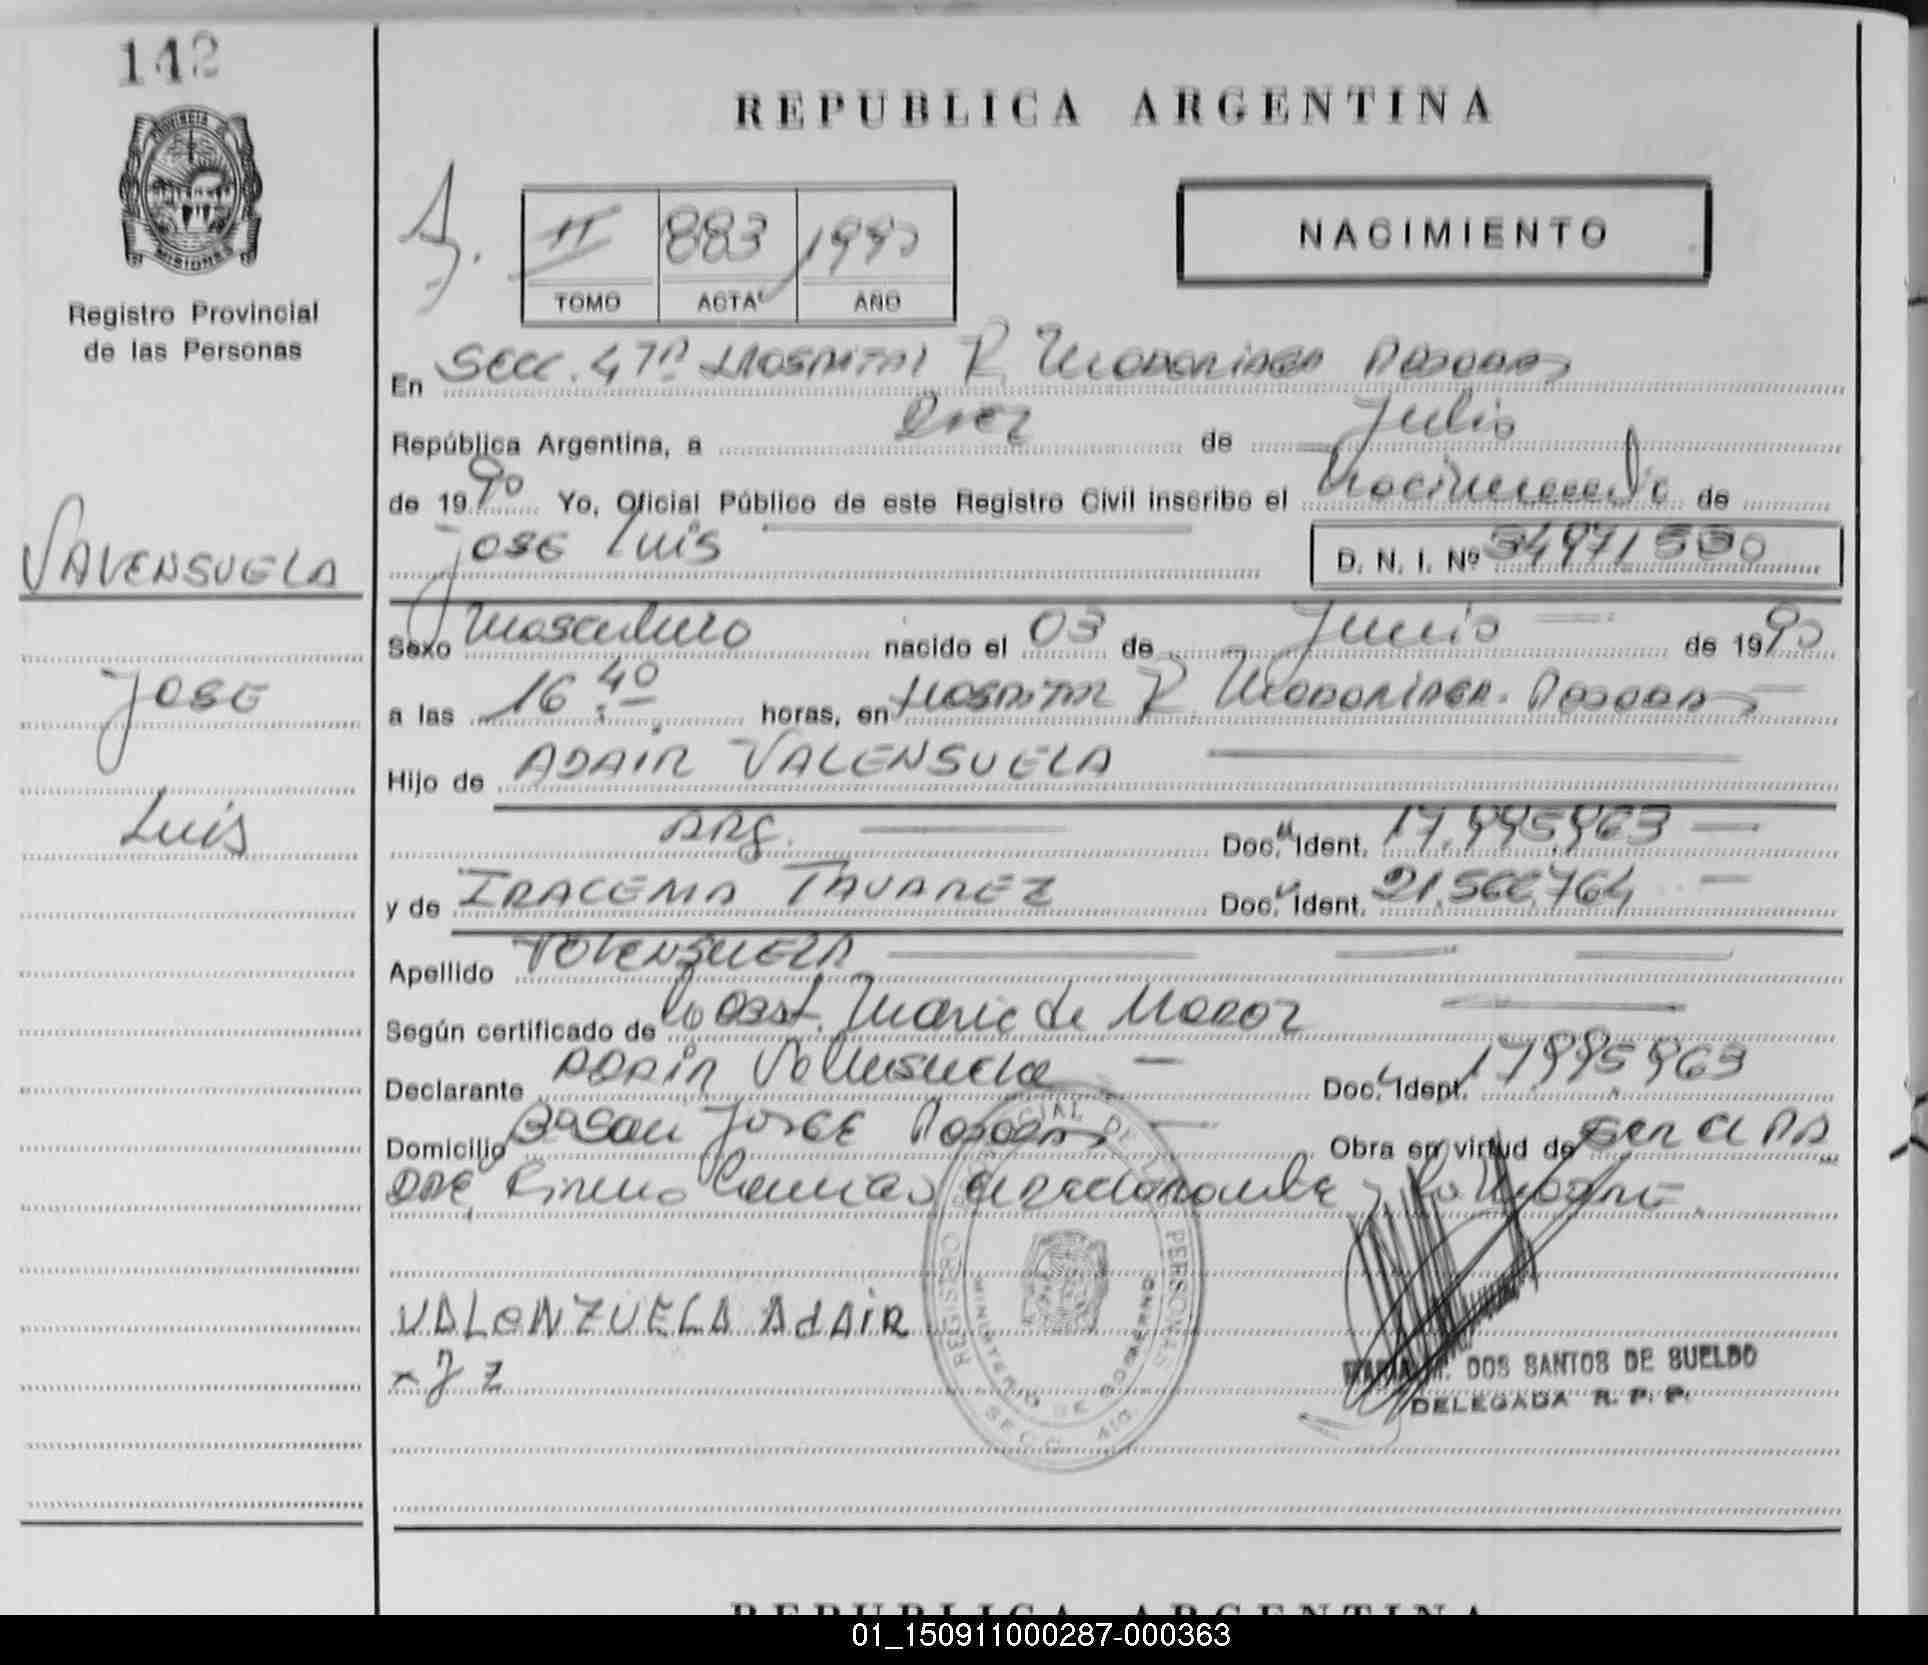 142
PROVINCIA
MISIONES
Registro Provincial
de las Personas
VALENSUELA
JOSE
Luis
REPUBLICA ARGENTINA
II 883 1990
TOMO ACTA AÑO
NACIMIENTO
En Secc. 4ta Hospital R. Madariaga Posadas
República Argentina, a Diez de Julio
de 1990 Yo, Oficial Público de este Registro Civil inscribo el Nacimiento de
JOSE Luis D. N. I. Nº
Sexo Masculino nacido el 03 de Junio de 1990
a las 16.40 horas, en Hospital R. Madariaga. Posadas
Hijo de ADAIR VALENSUELA
Arg. Doc. Ident. 17.995.963
y de IRACEMA TAVAREZ Doc. Ident. 764
Apellido VALENSUELA
Según certificado de Obst. Maria de
Declarante ADAIR Valensuela Doc. Ident. 17.995.963
Domicilio Bº San JORGE Posadas Obra en virtud de ser el PA
DRE, Firman el declarante
VALENZUELA AdAiR
REGISTRO PROVINCIAL DE LAS PERSONAS
MINISTERIO DE GOBIERNO
SECC. 4ta.
MARIA M. DOS SANTOS DE SUELDO
DELEGADA R. P. P.
REPUBLICA ARGENTINA
01_150911000287-000363